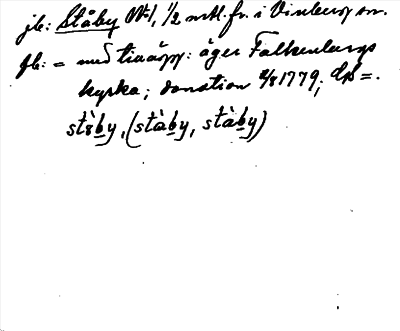 jb: Ståby Nr 1, 1/2 mtl. fr. i Vinbergs sn.
fb: = med tillägg: äger Falkenbergs
kyrka; donation 2/8 1779; ds =.
stòby, (stàby, stàby)